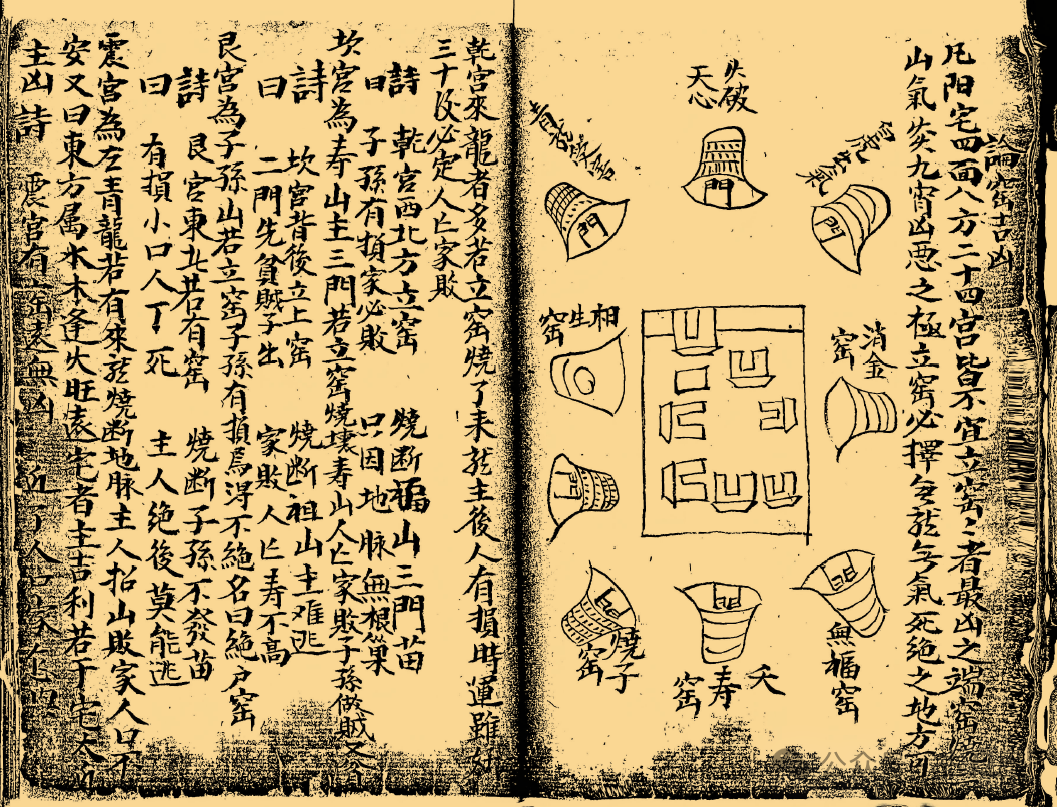 論窑吉凶
凡阳宅四面八方二十四宫皆不宜立窑〻者最凶之端窑烧
山氣炎九宵凶悪之極立窑必擇無龍無氣死绝之地方可
冲破
天心
消金
窑
相生
窑
無福窑
夭寿窑
燒子
窑
門
門
門
乾宫來龍者多若立窑燒了来龍主後人有損時運雖好
三十後必定人亡家敗
詩曰
乾宫西北方立窑
燒断福山三門苗
子孫有損家必敗
只因地脉無根巢
坎宫為寿山主三門若立窑燒壊寿山人亡家敗子孫做賊
詩曰
坎宫背後立上窑
燒断祖山主难逃
二門先貧賊子出
家敗人亡寿不高
艮宫為子孫山若立窑子孫有損焉得不絶名曰絶户窑
詩曰
艮宫東北若有窑
燒断子孫不發苗
有損小口人丁死
主人绝後莫能逃
震宫為左青龍若有來龍燒断地脉主人招山敗家人口不
安又曰東方属木木逢火旺遠宅者主吉利若于宅太近
主凶詩
震宫有窑遠無凶
近了人口